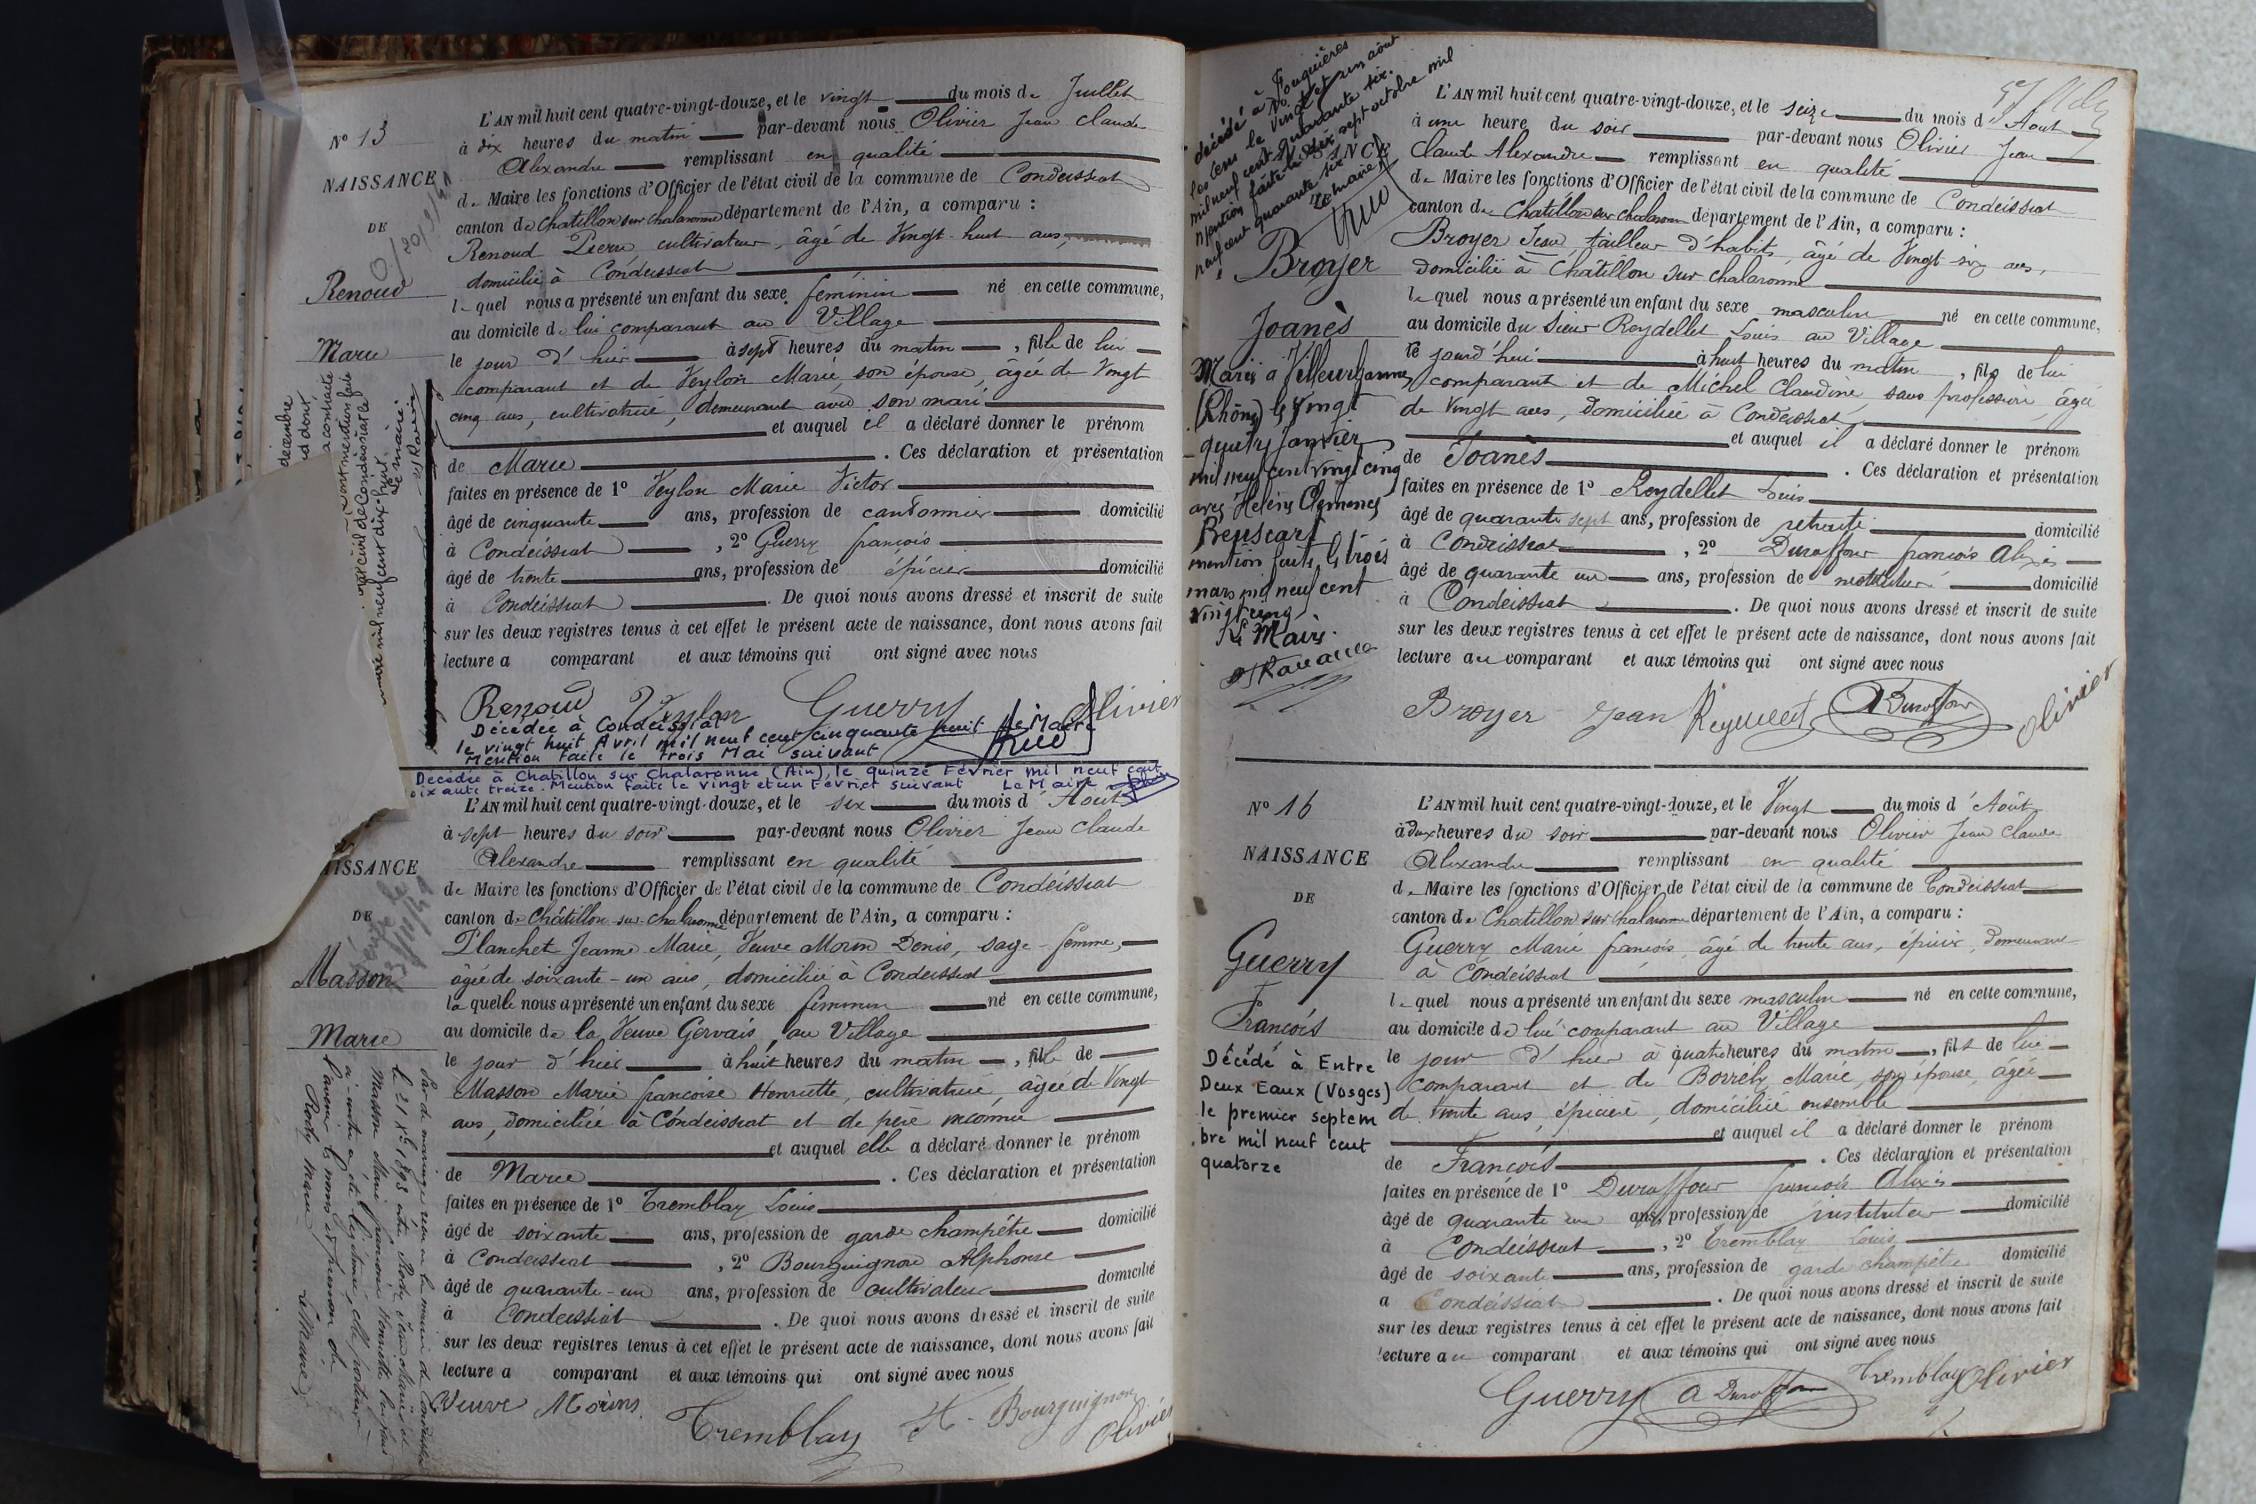 N° 13
NAISSANCE
DE
Renoud
Marie
L'AN mil huit cent quatre-vingt-douze, et le vingt du mois de Juillet
à dix heures du matin par-devant nous Olivier Jean Claude
Alexandre remplissant en qualité
de Maire les fonctions d'Officier de l'état civil de la commune de Condeissiat
canton de Chatillon sur chalaronne département de l'Ain, a comparu :
Renoud Pierre, cultivateur, âgé de Vingt huit ans,
domicilié à Condeissiat
lequel nous a présenté un enfant du sexe féminin né en cette commune,
au domicile de lui comparant au Village
le jour d'hier à sept heures du matin, fille de lui
comparant et de Veylon Marie, son épouse, âgée de Vingt
cinq ans, cultivatrice, demeurant avec son mari
et auquel il a déclaré donner le prénom
de Marie. Ces déclaration et présentation
faites en présence de 1° Veylon Marie Victor
âgé de cinquante ans, profession de cantonnier domicilié
à Condeissiat, 2° Guerry françois
âgé de trente ans, profession de épicier domicilié
à Condeissiat. De quoi nous avons dressé et inscrit de suite
sur les deux registres tenus à cet effet le présent acte de naissance, dont nous avons fait
lecture a comparant et aux témoins qui ont signé avec nous
Renoud Veylon Guerry Olivier
Décédée à Condeissiat
le vingt huit Avril mil neuf cent cinquante huit Le Maire
Mention faite le trois Mai suivant
Décédée à Chatillon sur Chalaronne (Ain), le quinze Février mil neuf cent
soixante treize. Mention faite le vingt et un Février suivant Le Maire
AISSANCE
DE
Masson
Marie
L'AN mil huit cent quatre-vingt-douze, et le six du mois d'Août
à sept heures du soir par-devant nous Olivier Jean Claude
Alexandre remplissant en qualité
de Maire les fonctions d'Officier de l'état civil de la commune de Condeissiat
canton de Châtillon-sur-chalaronne département de l'Ain, a comparu :
Planchet Jeanne Marie, Veuve Morin Denis, sage-femme,
âgée de soixante-un ans, domiciliée à Condeissiat
laquelle nous a présenté un enfant du sexe féminin né en cette commune,
au domicile de la Veuve Gervais, au Village
le jour d'hier à huit heures du matin, fille de
Masson Marie françoise Henriette, cultivatrice, âgée de Vingt
ans, domiciliée à Condeissiat et de père inconnu
et auquel elle a déclaré donner le prénom
de Marie. Ces déclaration et présentation
faites en présence de 1° Tremblay Louis
âgé de soixante ans, profession de garde champêtre domicilié
à Condeissiat, 2° Bourguignon Alphonse
âgé de quarante-un ans, profession de cultivateur domicilié
à Condeissiat. De quoi nous avons dressé et inscrit de suite
sur les deux registres tenus à cet effet le présent acte de naissance, dont nous avons fait
lecture a comparant et aux témoins qui ont signé avec nous
Veuve Morins Tremblay A. Bourguignon Olivier
décédé à Fouquières
les Lens le vingt et un août
mil neuf cent quarante six.
Mention faite le dix sept octobre mil
neuf cent quarante six
le maire
Broyer
Joanès
Marié à Villeurbanne
(Rhône) le vingt
quatre Janvier
mil neuf cent vingt cinq
avec Hélène Clémence
mention faite le trois
mars mil neuf cent
vingt cinq
Le Maire.
L'AN mil huit cent quatre-vingt-douze, et le seize du mois d'Aout
à une heure du soir par-devant nous Olivier Jean
Claude Alexandre remplissant en qualité
de Maire les fonctions d'Officier de l'état civil de la commune de Condeissiat
canton de Chatillon sur chalaronne département de l'Ain, a comparu :
Broyer Jean tailleur d'habits, âgé de Vingt six ans,
domicilié à Châtillon sur chalaronne
lequel nous a présenté un enfant du sexe masculin né en cette commune,
au domicile du Sieur Reydellet Louis au Village
le jourd'hui à huit heures du matin, fils de lui
comparant et de Michel Claudine, sans profession, âgée
de Vingt ans, domiciliée à Condeissiat,
et auquel il a déclaré donner le prénom
de Joanès. Ces déclaration et présentation
faites en présence de 1° Reydellet Louis
âgé de quarante sept ans, profession de retraité domicilié
à Condeissiat, 2° Duraffour françois Alexis
âgé de quarante un ans, profession de instituteur domicilié
à Condeissiat. De quoi nous avons dressé et inscrit de suite
sur les deux registres tenus à cet effet le présent acte de naissance, dont nous avons fait
lecture au comparant et aux témoins qui ont signé avec nous
Broyer Jean Reydellet A Duraffour Olivier
N° 16
NAISSANCE
DE
Guerry
François
Décédé à Entre
Deux Eaux (Vosges)
le premier septem
bre mil neuf cent
quatorze
L'AN mil huit cent quatre-vingt-douze, et le Vingt du mois d'Août
à deux heures du soir par-devant nous Olivier Jean Claude
Alexandre remplissant en qualité
de Maire les fonctions d'Officier de l'état civil de la commune de Condeissiat
canton de Chatillon sur chalaronne département de l'Ain, a comparu :
Guerry Marie françois, âgé de trente ans, épicier, demeurant
à Condeissiat
lequel nous a présenté un enfant du sexe masculin né en cette commune,
au domicile de lui comparant au Village
le jour d'hier à quatre heures du matin, fils de lui
comparant et de Borrély Marie, son épouse, âgée
de trente ans, épicière, domiciliée ensemble
et auquel il a déclaré donner le prénom
de François. Ces déclaration et présentation
faites en présence de 1° Duraffour françois Alexis
âgé de quarante un ans, profession de instituteur domicilié
à Condeissiat, 2° Tremblay Louis
âgé de soixante ans, profession de garde champêtre domicilié
a Condeissiat. De quoi nous avons dressé et inscrit de suite
sur les deux registres tenus à cet effet le présent acte de naissance, dont nous avons fait
lecture au comparant et aux témoins qui ont signé avec nous
Guerry A Duraffour Tremblay Olivier